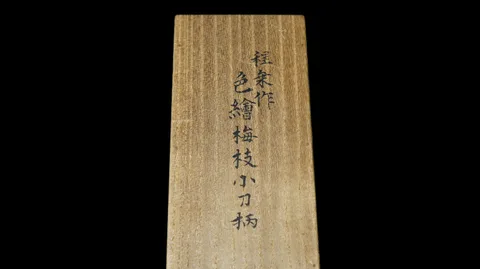 程乗作
色繪梅枝小刀柄